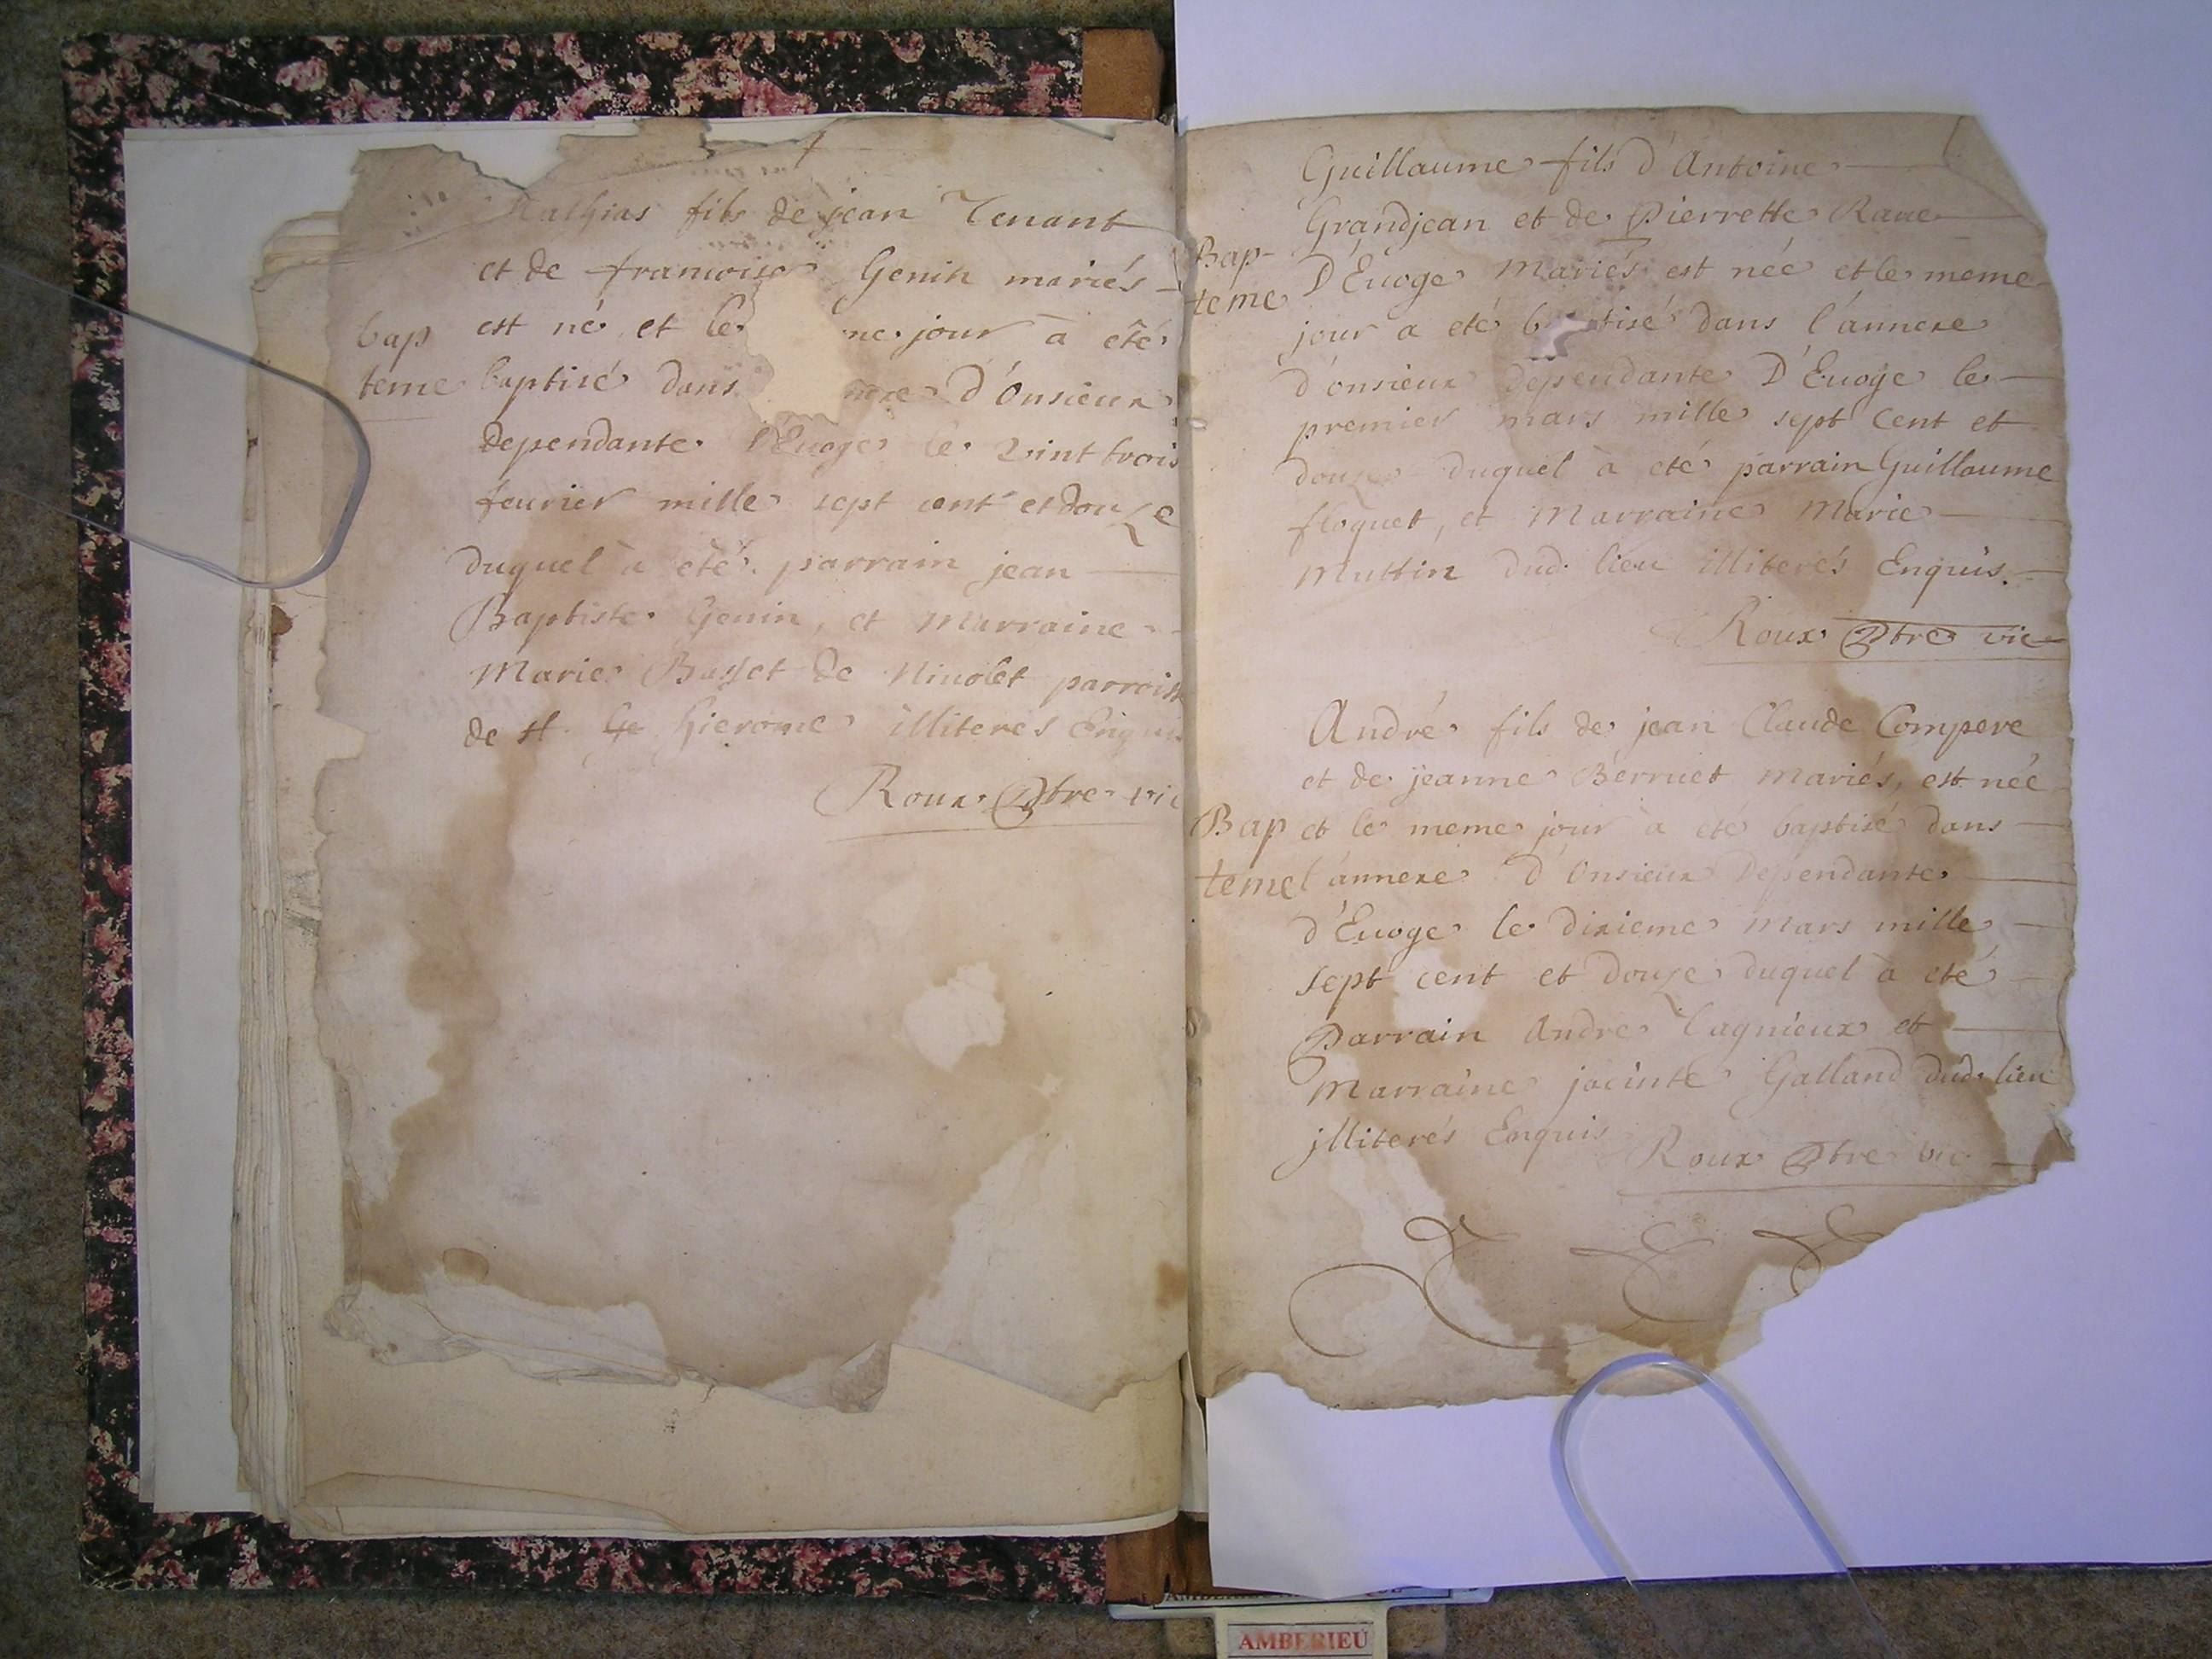 Mathias fils de jean Tenant
et de francoise Genin mariés
bap
teme
est né et le me jour à eté
baptisé dans nexe d'Onsieux
dependante d'Euoge le vint trois
feurier mille sept cent et douze
duquel à eté parrain jean
Baptiste Genin, et Marraine
Marie Busset de Niuolet parroisse
de st. Hierome illiteres Enquis
Roux Ptre vic
Guillaume fils d'Antoine
Grandjean et de Pierrette Raue
Bap-
teme
D'Euoge Mariés est néé et le meme
jour a eté b tisé dans l'annexe
d'onsieux dependante D'Euoge le
premier mars mille sept cent et
douze duquel à eté parrain Guillaume
floquet, et Marraine Marie
Muttin dud. lieu illiterés Enquis.
Roux Ptre vic
André fils de jean Claude Compere
et de jeanne Berruet Mariés, est néé
Bap
teme
et le meme jour a eté baptisé dans
l'annexe d'Onsieux Dependante
d'Euoge le dixieme Mars mille
sept cent et douze duquel à eté
Parrain Andre Lagnieux et
Marraine jacinte Galland dud. lieu
jlliterés Enquis
Roux Ptre vic
AMBERIEU